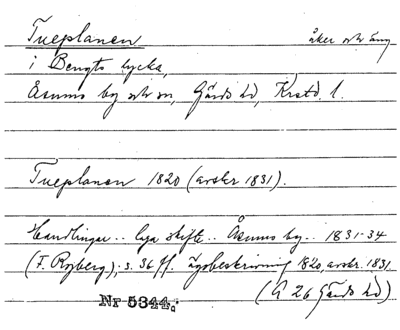 Tueplanen åker och äng
i Bengts lycka,
Åsums by och sn, Gärds hd, Krstd. l.
Tueplanen 1820 (avskr 1831).
Handlingar .. laga skifte .. Åsums by .. 1831-34
(F. Ryberg); s. 36 ff. Ägobeskrivning 1820, avskr. 1831
(A 26 Gärds hd)
Nr 5344.